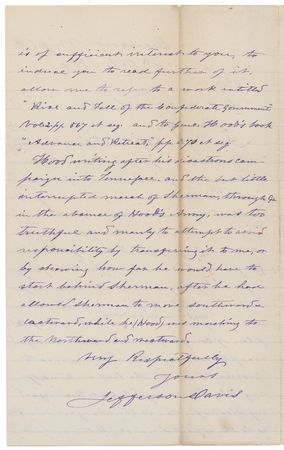 is of sufficient interest to you, to
induce you to read further of it,
allow me to refer to a work intitled
"Rise and Fall of the Confederate Government"
Vol 2, pp. 567 et seq. and to Genl. Hood's book
"Advance and Retreat, pp 270 et seq"
Hood writing after his disastrous cam-
paign into Tennessee, and the but little
interrupted march of Sherman, through Ga
in the absence of Hood's Army, was too
truthful and manly to attempt to avoid
responsibility by transfering it to me, or
by showing how far he would have to
start behind Sherman, after he had
allowed Sherman to move southward &
eastward, while he (Hood) was marching to
the Northward and westward.
Very Respectfully
Yours
Jefferson Davis